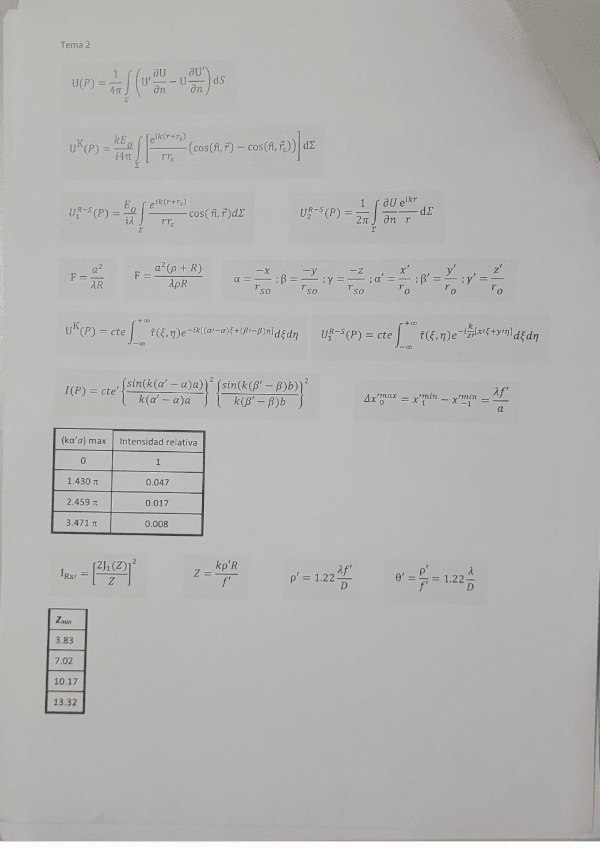 Tema 2
U(P) = \frac{1}{4\pi} \int_{\Sigma} \left( U' \frac{\partial U}{\partial n} - U \frac{\partial U'}{\partial n} \right) dS
U^{K}(P) = \frac{kE_o}{i4\pi} \int_{\Sigma} \left[ \frac{e^{ik(r+r_s)}}{rr_s} (cos(\hat{n}, \vec{r}) - cos(\hat{n}, \vec{r_s})) \right] d\Sigma
U_1^{R-S}(P) = \frac{E_o}{i\lambda} \int_{\Sigma} \frac{e^{ik(r+r_s)}}{rr_s} cos(\hat{n}, \vec{r}) d\Sigma U_2^{R-S}(P) = \frac{1}{2\pi} \int_{\Sigma} \frac{\partial U}{\partial n} \frac{e^{ikr}}{r} d\Sigma
F = \frac{a^2}{\lambda R} F = \frac{a^2(\rho + R)}{\lambda \rho R} \alpha = \frac{-x}{r_{SO}} ; \beta = \frac{-y}{r_{SO}} ; \gamma = \frac{-z}{r_{SO}} ; \alpha' = \frac{x'}{r_O} ; \beta' = \frac{y'}{r_O} ; \gamma' = \frac{z'}{r_O}
U^{K}(P) = cte \int_{-\infty}^{+\infty} \tilde{t}(\xi, \eta) e^{-ik[(\alpha'-\alpha)\xi + (\beta'-\beta)\eta]} d\xi d\eta U_1^{R-S}(P) = cte \int_{-\infty}^{+\infty} \tilde{t}(\xi, \eta) e^{-i\frac{k}{z'}[x'\xi + y'\eta]} d\xi d\eta
I(P) = cte' \left\{ \frac{sin(k(\alpha' - \alpha)a)}{k(\alpha' - \alpha)a} \right\}^2 \left\{ \frac{sin(k(\beta' - \beta)b)}{k(\beta' - \beta)b} \right\}^2 \Delta x'^{max}_{0} = x'^{min}_{1} - x'^{min}_{-1} = \frac{\lambda f'}{a}
(kα'a) max Intensidad relativa
0 1
1.430 π 0.047
2.459 π 0.017
3.471 π 0.008
I_{Rx'} = \left[ \frac{2J_1(Z)}{Z} \right]^2 Z = \frac{k\rho' R}{f'} \rho' = 1.22 \frac{\lambda f'}{D} \theta' = \frac{\rho'}{f'} = 1.22 \frac{\lambda}{D}
Z_{min}
3.83
7.02
10.17
13.32